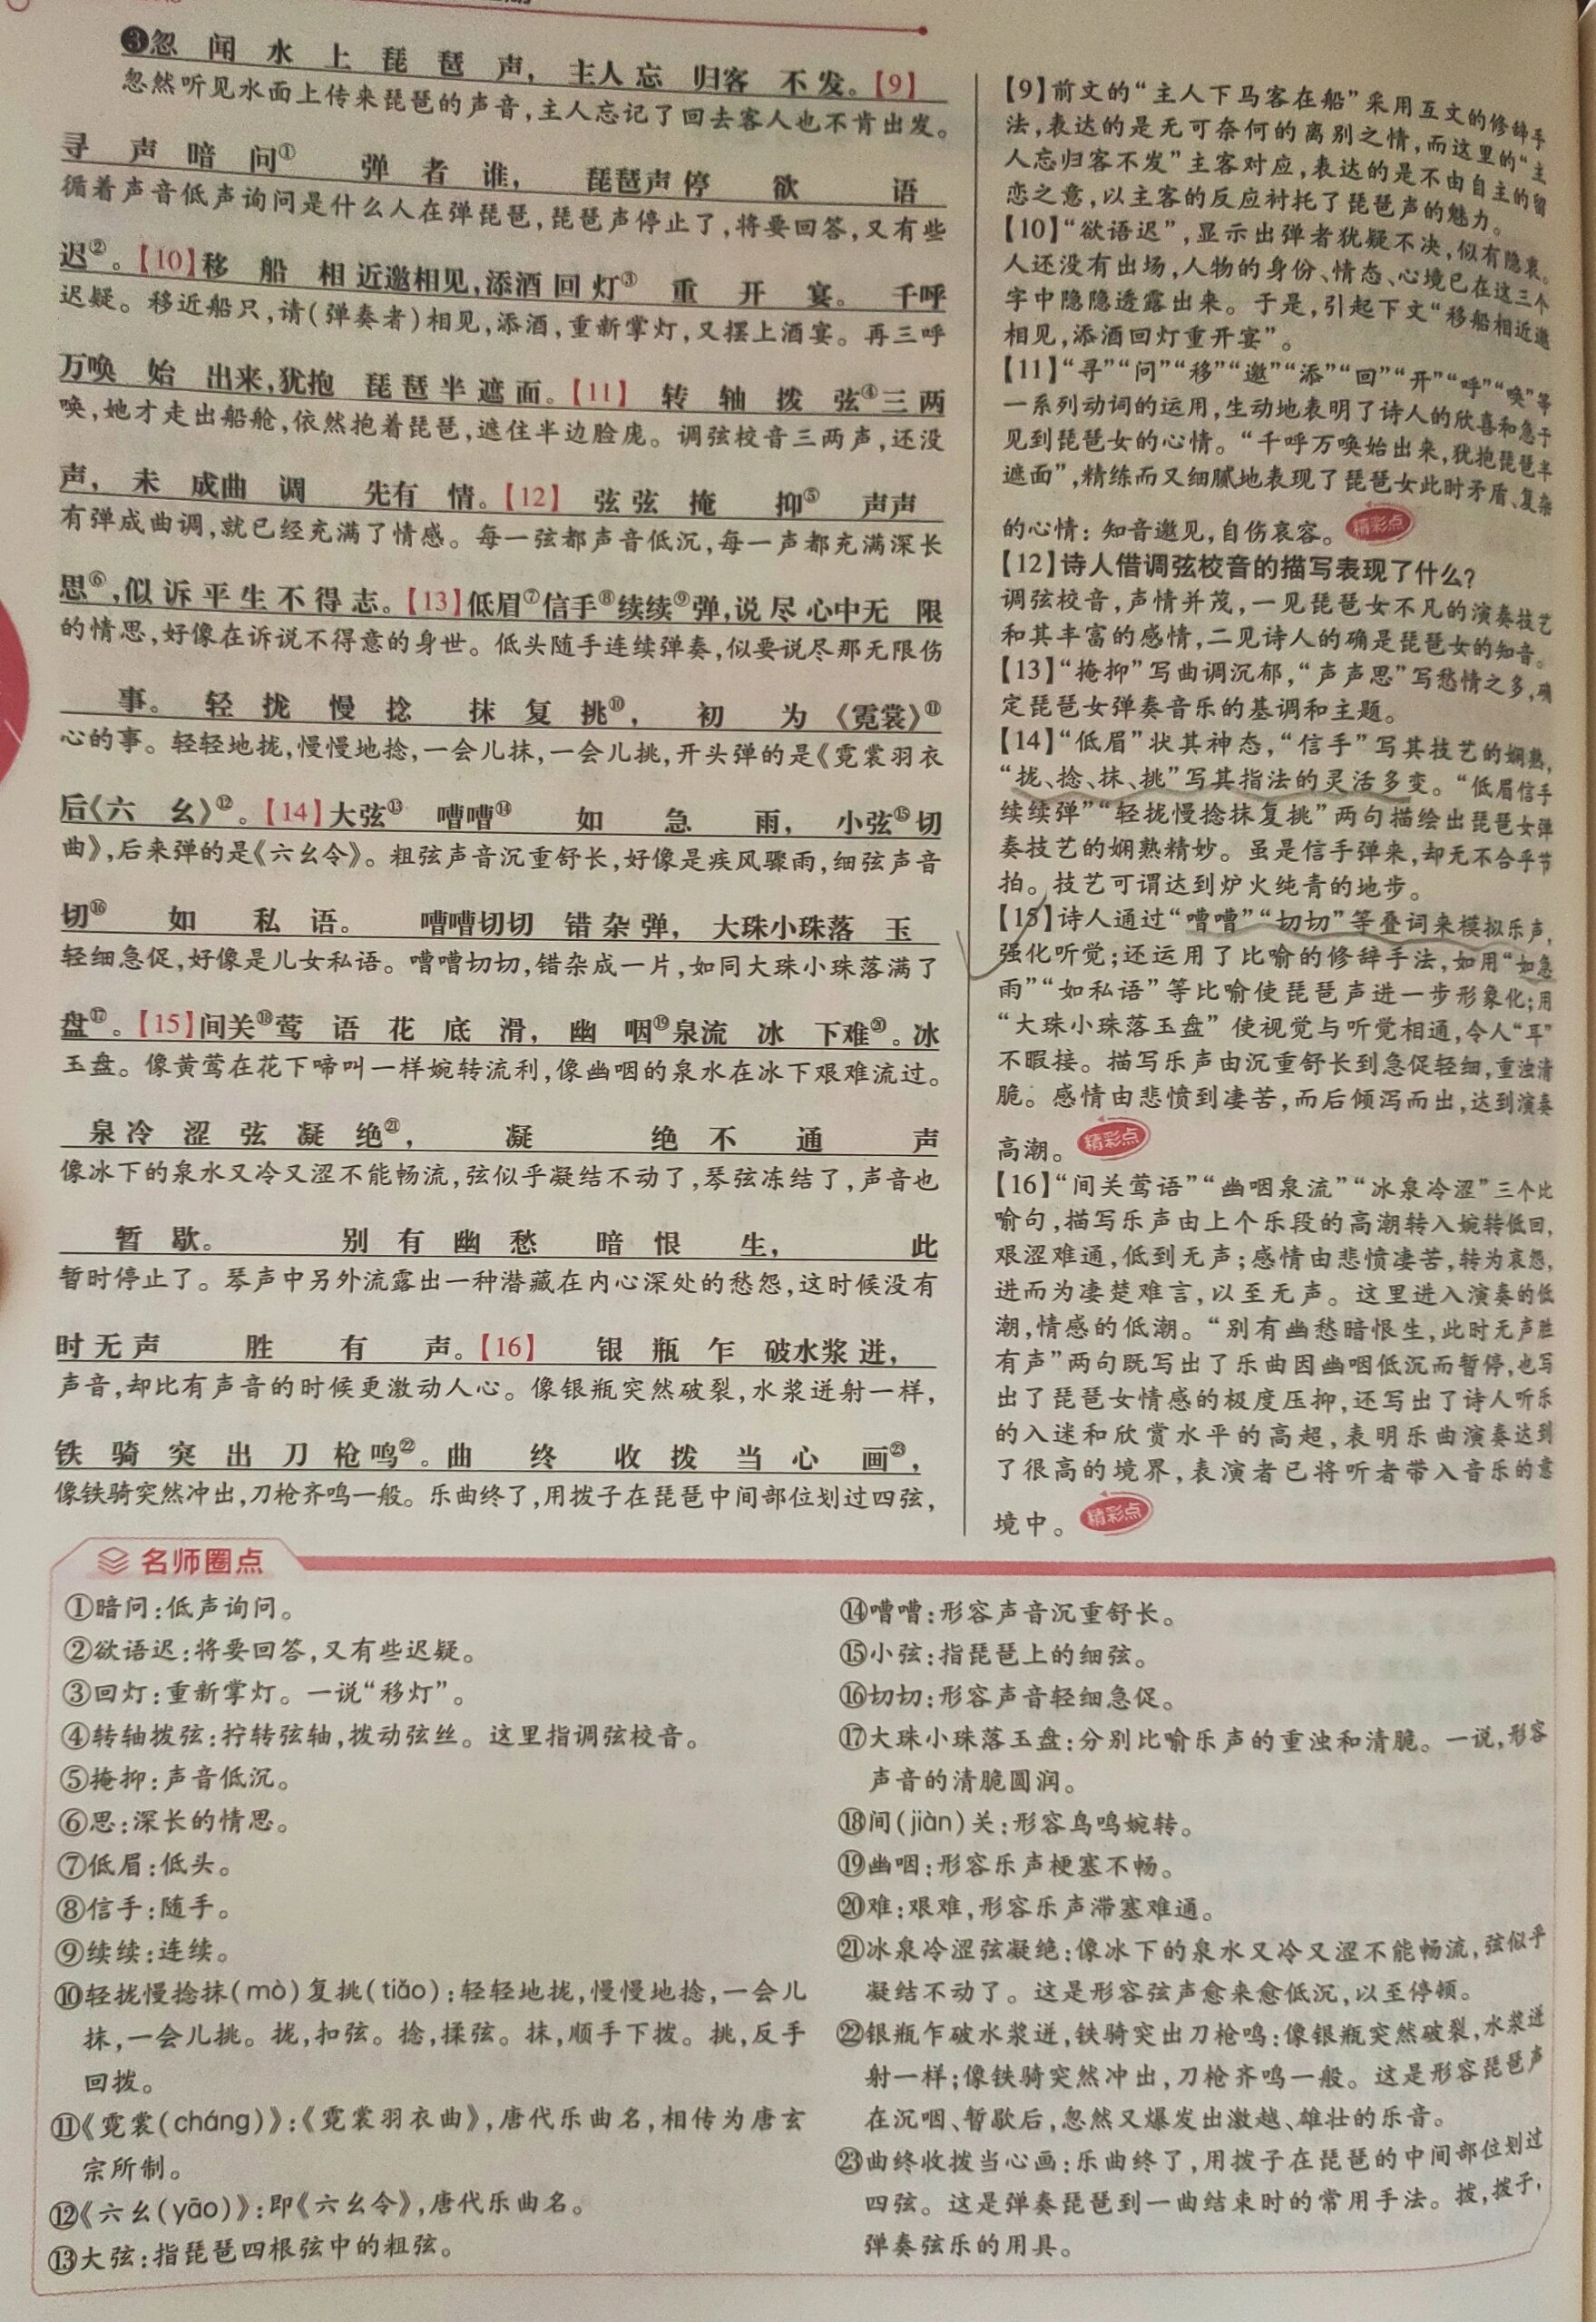 ❸忽闻水上琵琶声，主人忘归客不发。【9】
忽然听见水面上传来琵琶的声音，主人忘记了回去客人也不肯出发。
寻声暗问①弹者谁，琵琶声停欲语
循着声音低声询问是什么人在弹琵琶，琵琶声停止了，将要回答，又有些
迟②。【10】移船相近邀相见，添酒回灯③重开宴。千呼
迟疑。移近船只，请（弹奏者）相见，添酒，重新掌灯，又摆上酒宴。再三呼
万唤始出来，犹抱琵琶半遮面。【11】转轴拨弦④三两
唤，她才走出船舱，依然抱着琵琶，遮住半边脸庞。调弦校音三两声，还没
声，未成曲调先有情。【12】弦弦掩抑⑤声声
有弹成曲调，就已经充满了情感。每一弦都声音低沉，每一声都充满深长
思⑥，似诉平生不得志。【13】低眉⑦信手⑧续续⑨弹，说尽心中无限
的情思，好像在诉说不得意的身世。低头随手连续弹奏，似要说尽那无限伤
事。轻拢慢捻抹复挑⑩，初为《霓裳》⑪
心的事。轻轻地拢，慢慢地捻，一会儿抹，一会儿挑，开头弹的是《霓裳羽衣
后《六幺》⑫。【14】大弦⑬嘈嘈⑭如急雨，小弦⑮切
曲》，后来弹的是《六幺令》。粗弦声音沉重舒长，好像是疾风骤雨，细弦声音
切⑯如私语。嘈嘈切切错杂弹，大珠小珠落玉
轻细急促，好像是儿女私语。嘈嘈切切，错杂成一片，如同大珠小珠落满了
盘⑰。【15】间关⑱莺语花底滑，幽咽⑲泉流冰下难⑳。冰
玉盘。像黄莺在花下啼叫一样婉转流利，像幽咽的泉水在冰下艰难流过。
泉冷涩弦凝绝㉑，凝绝不通声
像冰下的泉水又冷又涩不能畅流，弦似乎凝结不动了，琴弦冻结了，声音也
暂歇。别有幽愁暗恨生，此
暂时停止了。琴声中另外流露出一种潜藏在内心深处的愁怨，这时候没有
时无声胜有声。【16】银瓶乍破水浆迸，
声音，却比有声音的时候更激动人心。像银瓶突然破裂，水浆迸射一样，
铁骑突出刀枪鸣㉒。曲终收拨当心画㉓，
像铁骑突然冲出，刀枪齐鸣一般。乐曲终了，用拨子在琵琶中间部位划过四弦，
【9】前文的“主人下马客在船”采用互文的修辞手
法，表达的是无可奈何的离别之情，而这里的“主
人忘归客不发”主客对应，表达的是不由自主的留
恋之意，以主客的反应衬托了琵琶声的魅力。
【10】“欲语迟”，显示出弹者犹疑不决，似有隐衷。
人还没有出场，人物的身份、情态、心境已在这三个
字中隐隐透露出来。于是，引起下文“移船相近邀
相见，添酒回灯重开宴”。
【11】“寻”“问”“移”“邀”“添”“回”“开”“呼”“唤”等
一系列动词的运用，生动地表明了诗人的欣喜和急于
见到琵琶女的心情。“千呼万唤始出来，犹抱琵琶半
遮面”，精练而又细腻地表现了琵琶女此时矛盾、复杂
的心情：知音邀见，自伤哀容。 精彩点
【12】诗人借调弦校音的描写表现了什么？
调弦校音，声情并茂，一见琵琶女不凡的演奏技艺
和其丰富的感情，二见诗人的确是琵琶女的知音。
【13】“掩抑”写曲调沉郁，“声声思”写愁情之多，确
定琵琶女弹奏音乐的基调和主题。
【14】“低眉”状其神态，“信手”写其技艺的娴熟，
“拢、捻、抹、挑”写其指法的灵活多变。“低眉信手
续续弹”“轻拢慢捻抹复挑”两句描绘出琵琶女弹
奏技艺的娴熟精妙。虽是信手弹来，却无不合乎节
拍。技艺可谓达到炉火纯青的地步。
【15】诗人通过“嘈嘈”“切切”等叠词来模拟乐声，
强化听觉；还运用了比喻的修辞手法，如用“如急
雨”“如私语”等比喻使琵琶声进一步形象化；用
“大珠小珠落玉盘”使视觉与听觉相通，令人“耳”
不暇接。描写乐声由沉重舒长到急促轻细，重浊清
脆。感情由悲愤到凄苦，而后倾泻而出，达到演奏
高潮。 精彩点
【16】“间关莺语”“幽咽泉流”“冰泉冷涩”三个比
喻句，描写乐声由上个乐段的高潮转入婉转低回，
艰涩难通，低到无声；感情由悲愤凄苦，转为哀怨，
进而为凄楚难言，以至无声。这里进入演奏的低
潮，情感的低潮。“别有幽愁暗恨生，此时无声胜
有声”两句既写出了乐曲因幽咽低沉而暂停，也写
出了琵琶女情感的极度压抑，还写出了诗人听乐
的入迷和欣赏水平的高超，表明乐曲演奏达到
了很高的境界，表演者已将听者带入音乐的意
境中。 精彩点
名师圈点
①暗问：低声询问。
②欲语迟：将要回答，又有些迟疑。
③回灯：重新掌灯。一说“移灯”。
④转轴拨弦：拧转弦轴，拨动弦丝。这里指调弦校音。
⑤掩抑：声音低沉。
⑥思：深长的情思。
⑦低眉：低头。
⑧信手：随手。
⑨续续：连续。
⑩轻拢慢捻抹(mò)复挑(tiǎo)：轻轻地拢，慢慢地捻，一会儿
抹，一会儿挑。拢，扣弦。捻，揉弦。抹，顺手下拨。挑，反手
回拨。
⑪《霓裳(cháng)》：《霓裳羽衣曲》，唐代乐曲名，相传为唐玄
宗所制。
⑫《六幺(yāo)》：即《六幺令》，唐代乐曲名。
⑬大弦：指琵琶四根弦中的粗弦。
⑭嘈嘈：形容声音沉重舒长。
⑮小弦：指琵琶上的细弦。
⑯切切：形容声音轻细急促。
⑰大珠小珠落玉盘：分别比喻乐声的重浊和清脆。一说，形容
声音的清脆圆润。
⑱间(jiàn)关：形容鸟鸣婉转。
⑲幽咽：形容乐声梗塞不畅。
⑳难：艰难，形容乐声滞塞难通。
㉑冰泉冷涩弦凝绝：像冰下的泉水又冷又涩不能畅流，弦似乎
凝结不动了。这是形容弦声愈来愈低沉，以至停顿。
㉒银瓶乍破水浆迸，铁骑突出刀枪鸣：像银瓶突然破裂，水浆迸
射一样；像铁骑突然冲出，刀枪齐鸣一般。这是形容琵琶声
在沉咽、暂歇后，忽然又爆发出激越、雄壮的乐音。
㉓曲终收拨当心画：乐曲终了，用拨子在琵琶的中间部位划过
四弦。这是弹奏琵琶到一曲结束时的常用手法。拨，拨子，
弹奏弦乐的用具。